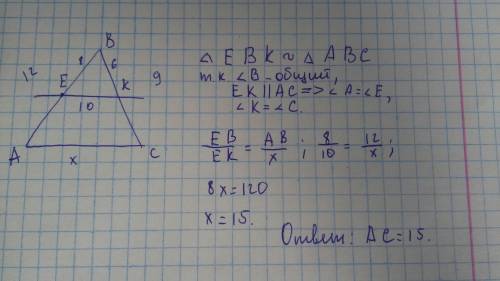 B
8 6
12 E K 9
10
A x C
△ EBK ~ △ ABC
т.к. ∠B - общий,
EK || AC => ∠A = ∠E,
∠K = ∠C.
EB/EK = AB/x ; 8/10 = 12/x ;
8x = 120
x = 15.
Ответ: AC = 15.